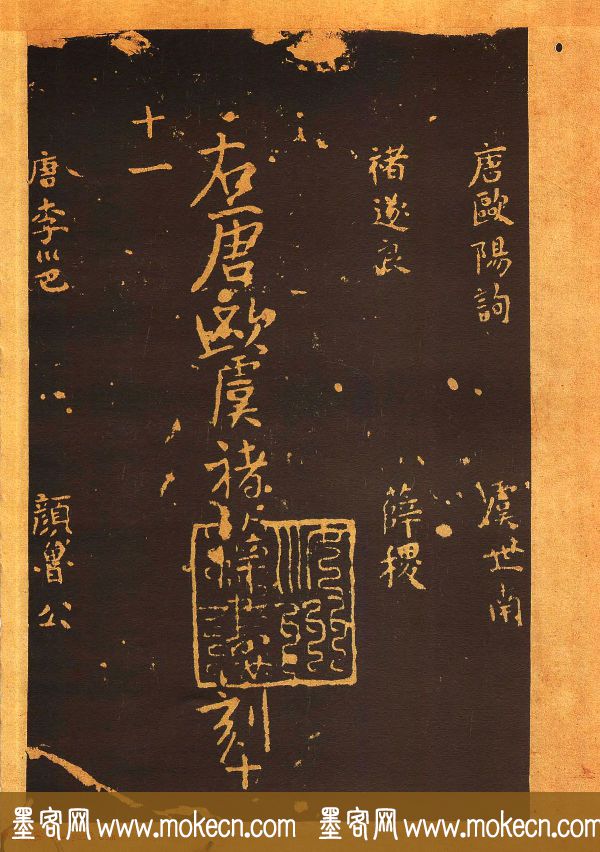 唐歐陽詢
虞世南
褚遂良
薛稷
右唐歐虞褚
刻
十一
唐李邕
顏魯公
墨客网 www.mokecn.com 墨客网 www.mokecn.com